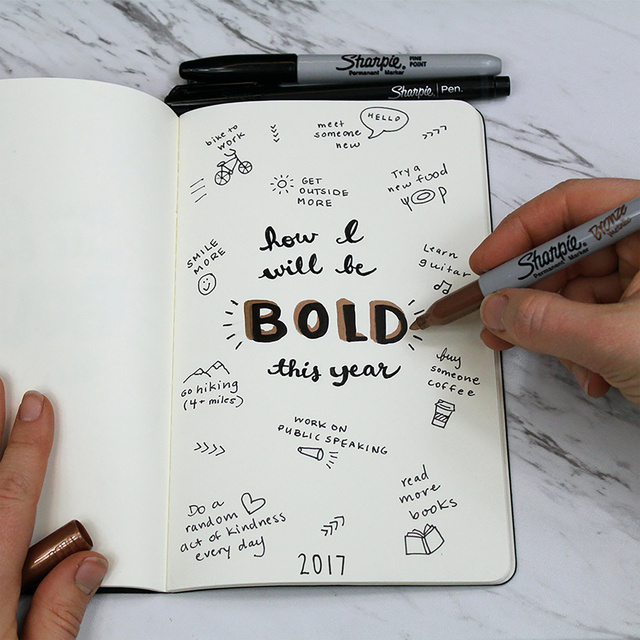 Sharpie FINE POINT
Permanent Marker
Sharpie Pen.
bike to
work
meet
someone
new
HELLO
GET
OUTSIDE
MORE
Try a
new food
SMILE
MORE
how I
will be
BOLD
this year
Learn
guitar
Sharpie
Permanent Marker
Bronze
go hiking
(4+ miles)
buy
someone
coffee
WORK ON
PUBLIC SPEAKING
read
more
books
Do a
random
act of kindness
every day
2017